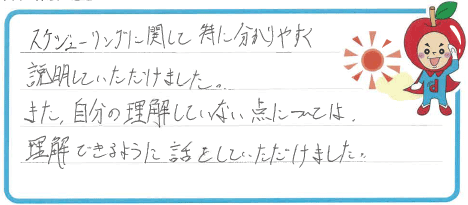 スケジューリングに関して特に分かりやすく
説明していただけました。
また、自分の理解していない点については、
理解できるように話をしていただけました。